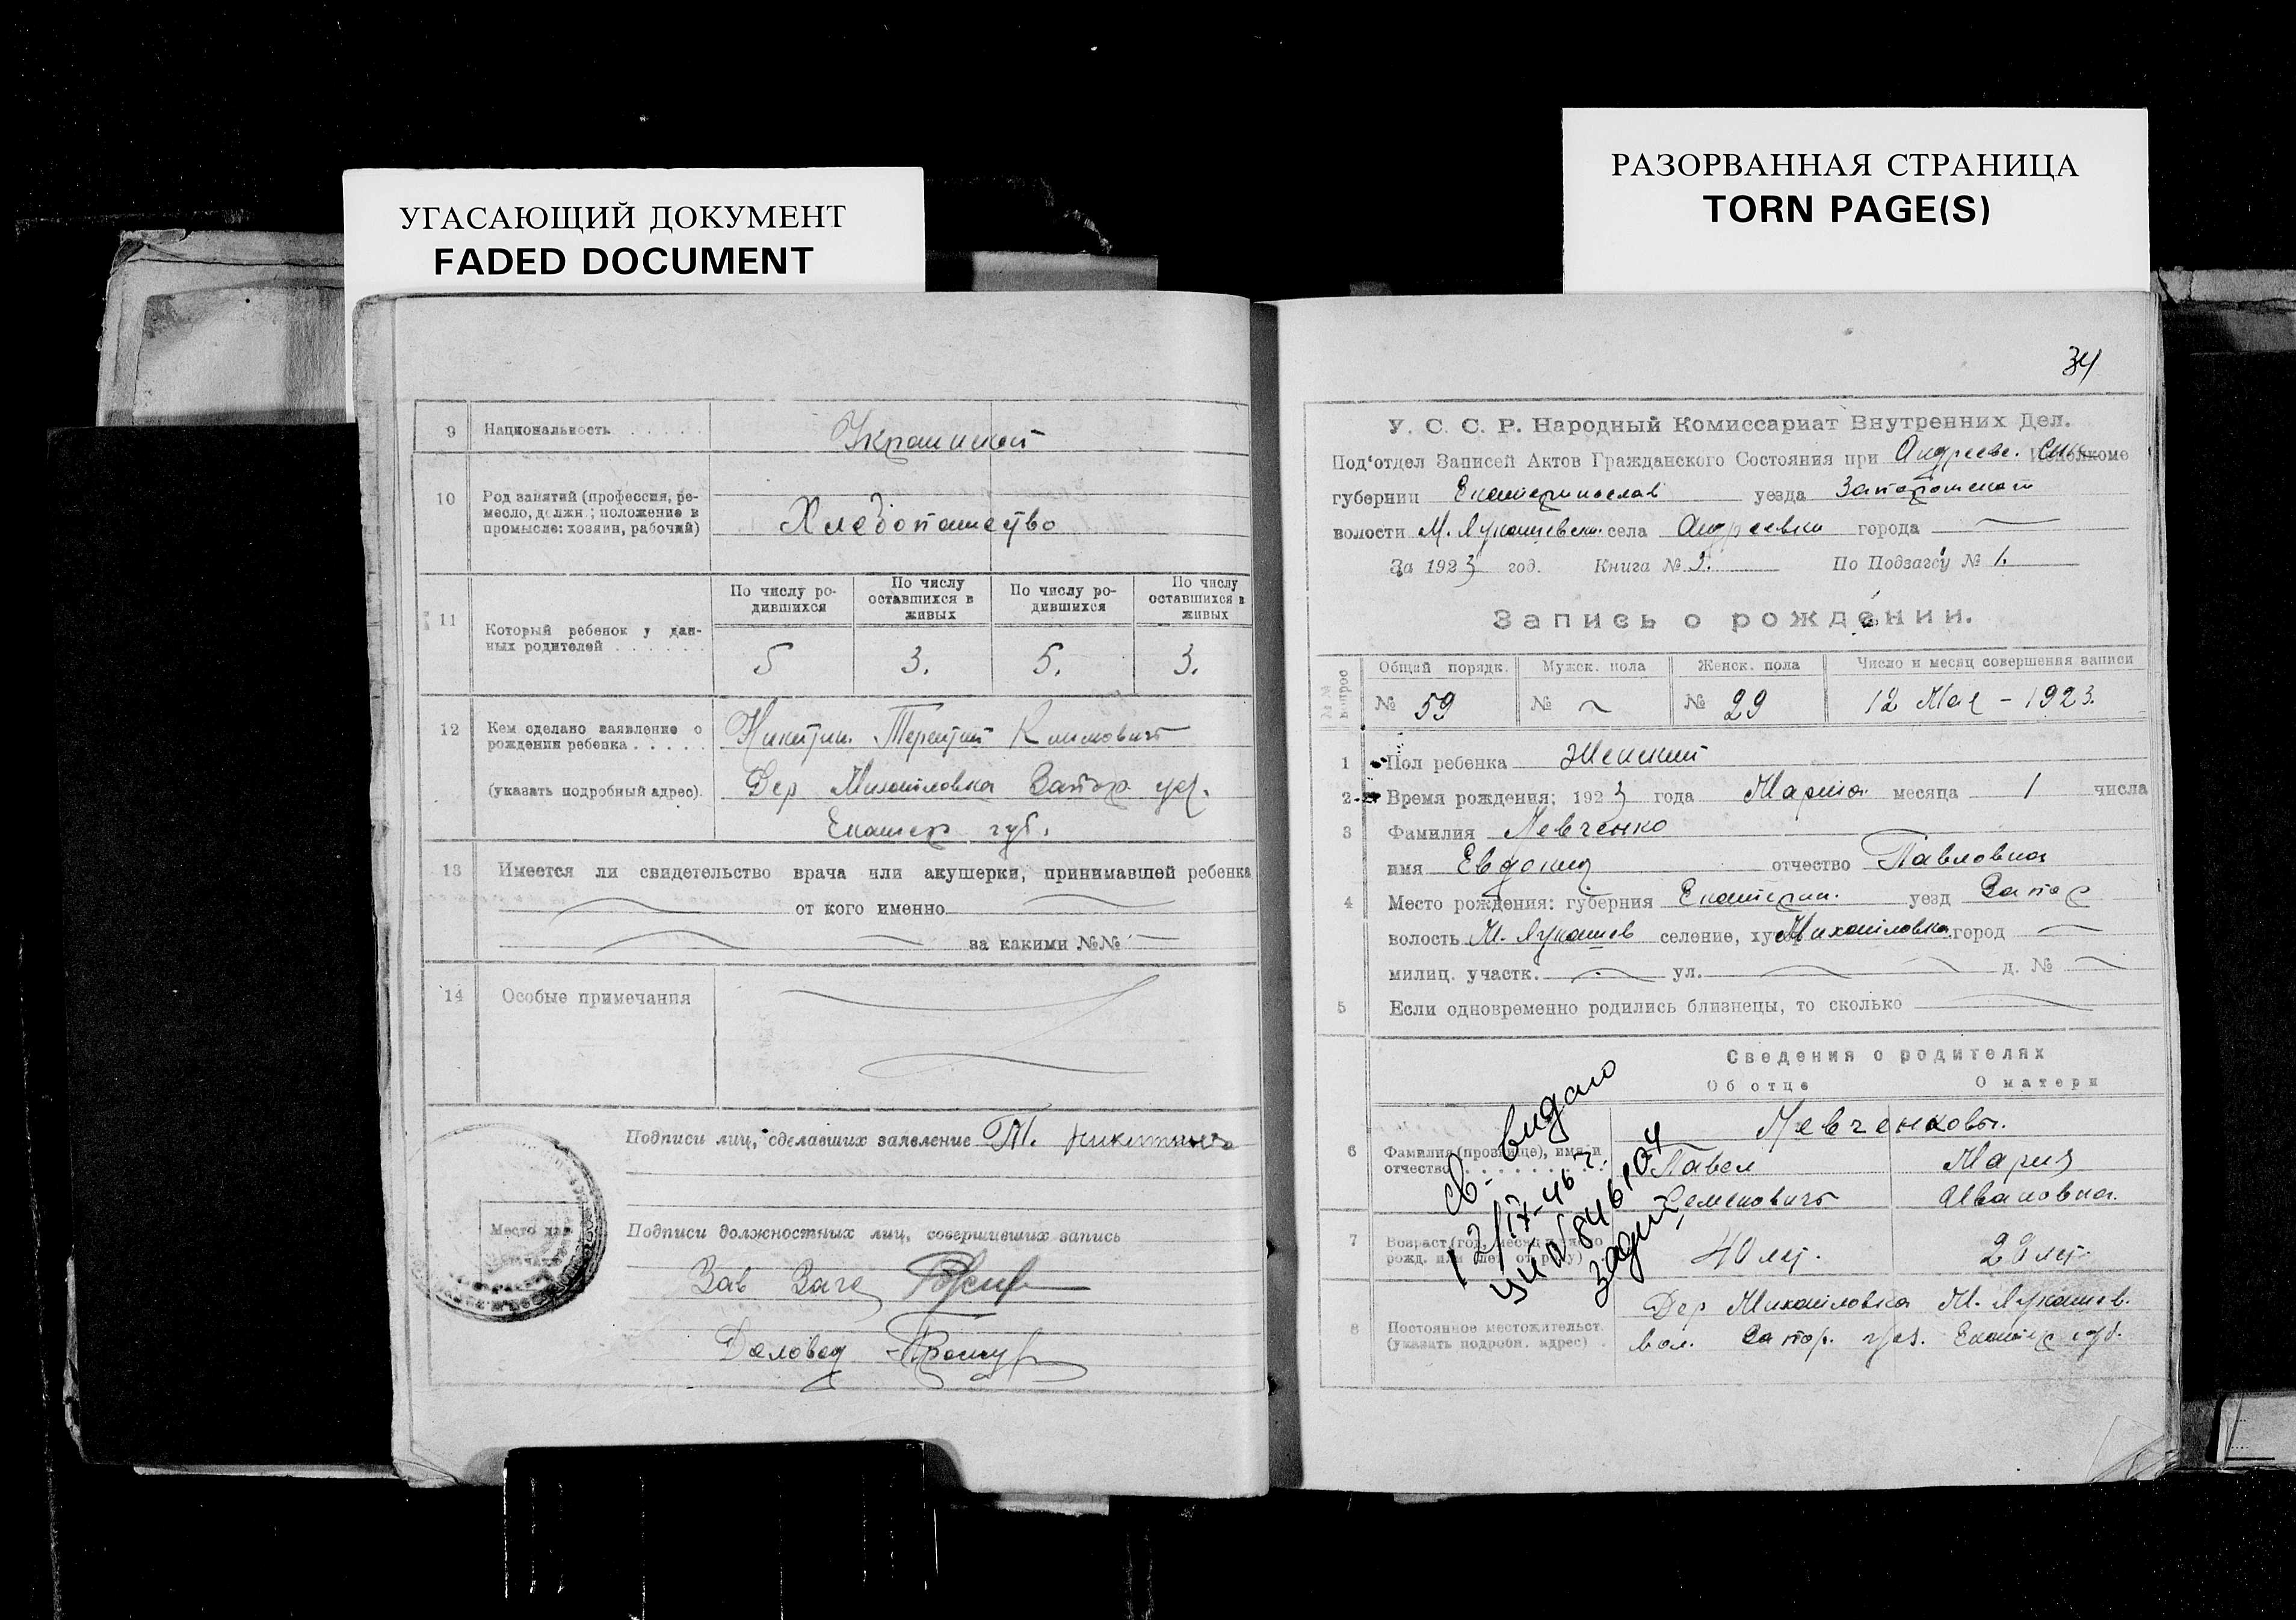 УГАСАЮЩИЙ ДОКУМЕНТ
FADED DOCUMENT
9 Национальность . . . . . Украинской
10 Род занятий (профессия, ремесло, должн.; положение в промысле: хозяин, рабочий) Хлебопашество
11 Который ребенок у данных родителей . . . . . . .
По числу родившихся По числу оставшихся в живых По числу родившихся По числу оставшихся в живых
5 3. 5. 3.
12 Кем сделано заявление о рождении ребенка . . . . . Никитин Терентий Климович
(указать подробный адрес). Дер Михайловка Запор. уез.
Екатер губ.
13 Имеется ли свидетельство врача или акушерки, принимавшей ребенка
от кого именно
за какими №№
14 Особые примечания
Подписи лиц, сделавших заявление Т. Никитин
Место для печати
Подписи должностных лиц, совершивших запись
Зав Загс
Деловод
РАЗОРВАННАЯ СТРАНИЦА
TORN PAGE(S)
34
У. С. С. Р. Народный Комиссариат Внутренних Дел.
Под'отдел Записей Актов Гражданского Состояния при Андреев. Исполкоме
губернии Екатеринослав уезда Запорожской
волости М. Лукашевск. села Андреевки города
За 1923 год. Книга № 2. По Подзагсу № 1.
Запись о рождении.
№№ вопрос Общий порядк. Мужск. пола Женск. пола Число и месяц совершения записи
№ 59 № № 29 12 Мая - 1923.
1 Пол ребенка Женский
2 Время рождения: 1923 года Марта месяца 1 числа
3 Фамилия Левченко
имя Евдокия отчество Павловна
4 Место рождения: губерния Екатерин. уезд Запор
волость М. Лукашев селение, хутор Михайловка город
милиц. участк. ул. д. №
5 Если одновременно родились близнецы, то сколько
Сведения о родителях
Об отце О матери
Левченковы.
6 Фамилия (прозвище), имя и отчество Павел Мария
Семенович Ивановна.
7 Возраст (год, месяц и число рожд. или лет от роду) 40 лет. 28 лет.
8 Постоянное местожительст. (указать подробн. адрес) Дер Михайловка М. Лукашев.
вол. Запор. уез. Екатер губ.
св. видано
12/IX-46 г.